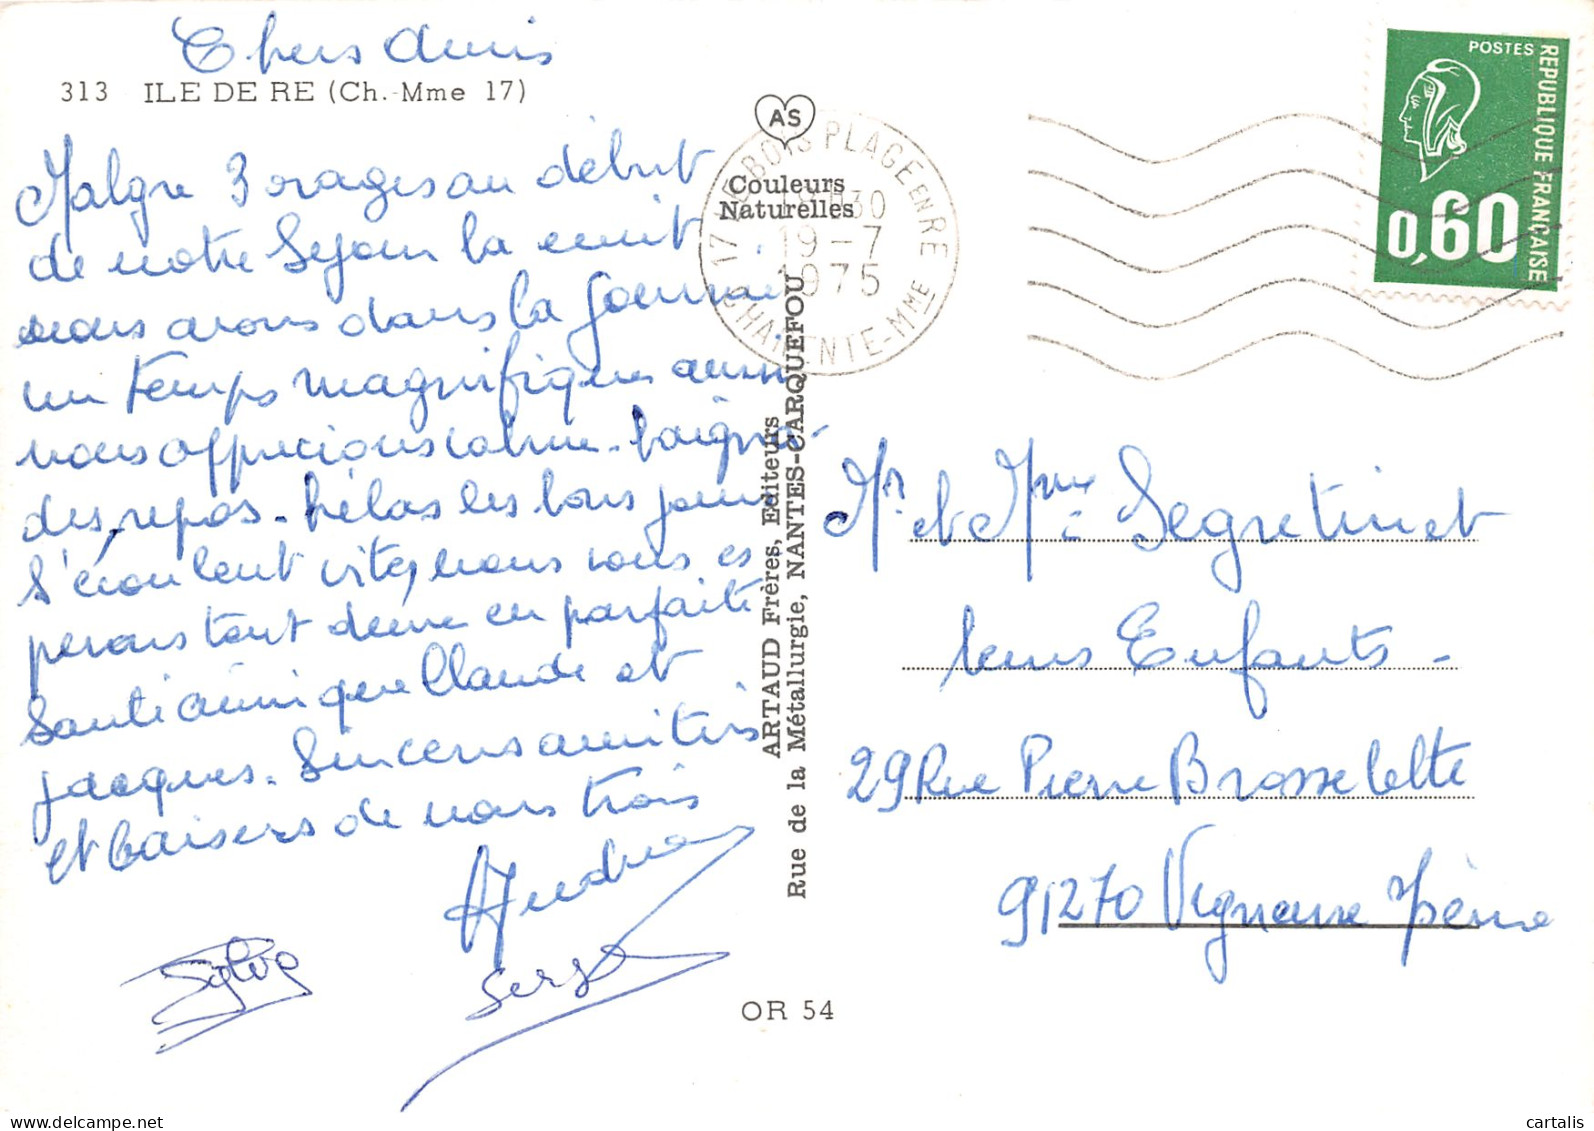 Chers Amis
313 ILE DE RE (Ch.-Mme 17)
Malgre 3 orages au début
de notre Sejour la nuit
nous avons dans la Journée
un temps magnifique aussi
nous apprecions calme - baigna-
des, repos - hélas les bons jours
s'écoulent vite, nous vous es
perons tout deux en parfaite
Santé ainsi que Claude et
Jacques. Sinceres amitiés
et baisers de nous trois
Andrea
Serge
Sylvie
AS
Couleurs
Naturelles
ARTAUD Frères, Editeurs
Rue de la Métallurgie, NANTES-CARQUEFOU
OR 54
17 LE BOIS PLAGE EN RE
30
19-7
1975
CHARENTE-MME
POSTES
REPUBLIQUE FRANCAISE
0,60
Mr et Mme Segretinet
leurs Enfants -
29 Rue Pierre Brossolette
91270 Vigneux s/seine
cartalis
www.delcampe.net